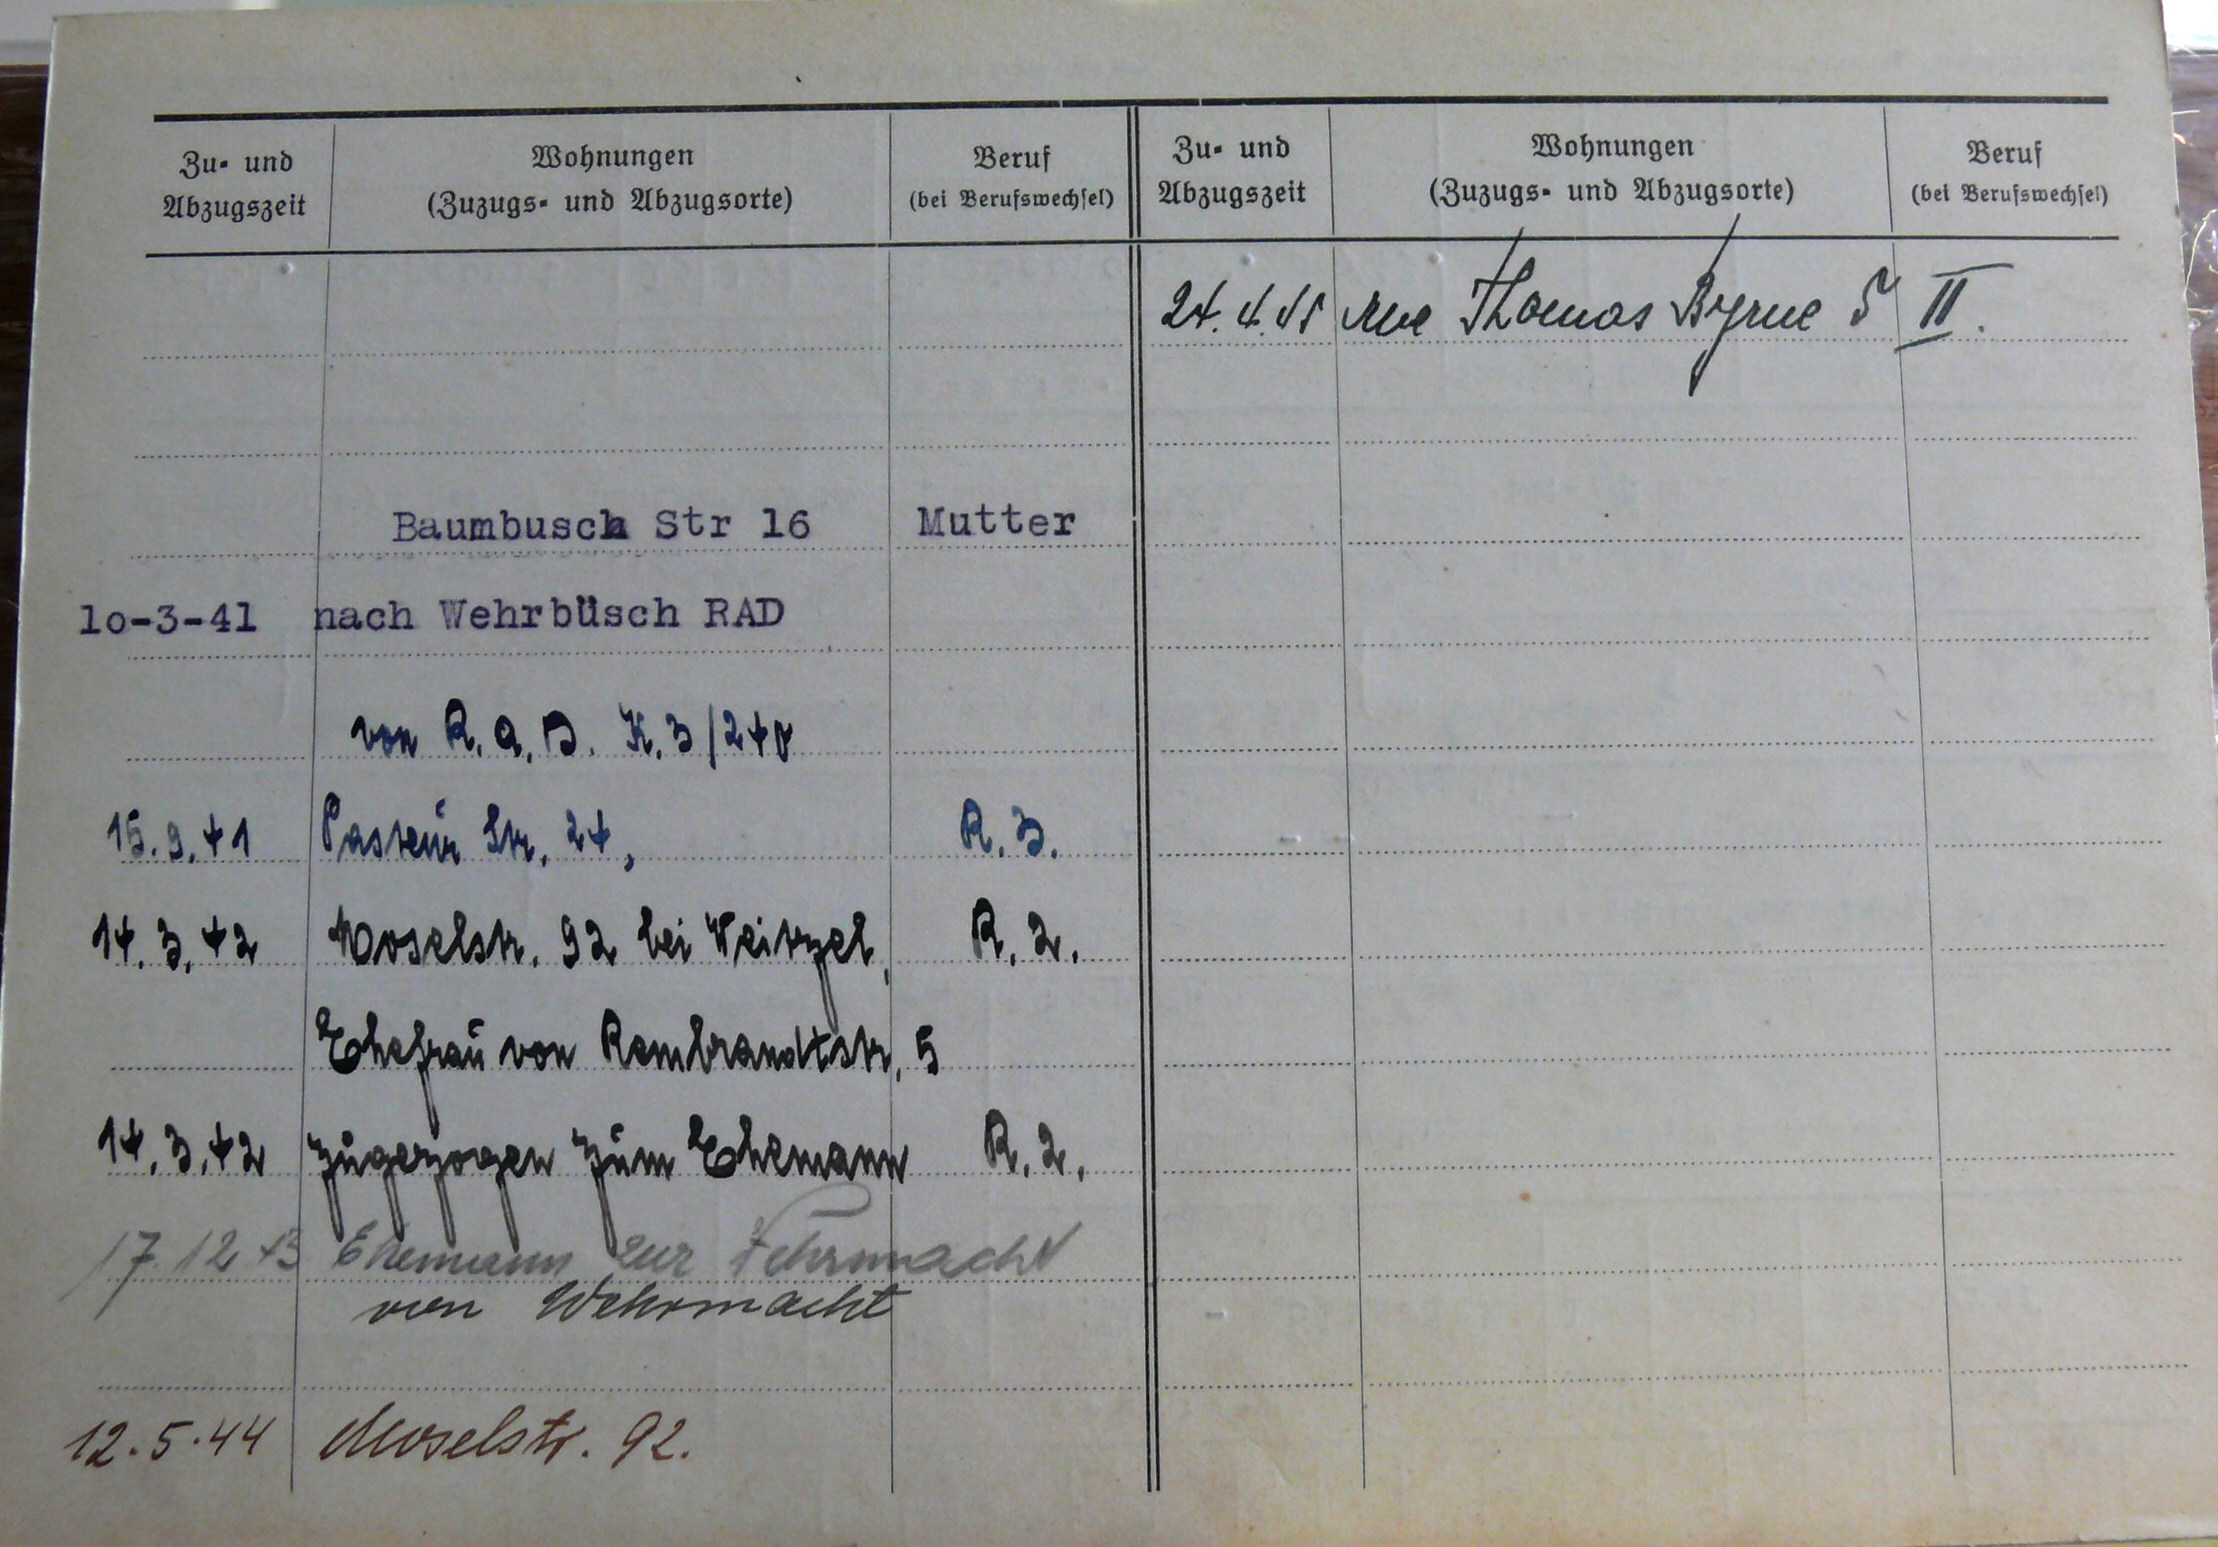 Zu- und Abzugszeit
Wohnungen (Zuzugs- und Abzugsorte)
Beruf (bei Berufswechsel)
Zu- und Abzugszeit
Wohnungen (Zuzugs- und Abzugsorte)
Beruf (bei Berufswechsel)
Baumbusch Str 16 Mutter
lo-3-41 nach Wehrbüsch RAD
von R.A.D. K.3/240
15.9.41 Pasteur Str. 24, R.3.
14.3.42 Moselstr. 92 bei Weitzel, R.2.
Ehefrau von Rembrandtstr. 5
14.3.42 zugezogen zum Ehemann R.2.
17.12.43 Ehemann zur Wehrmacht
von Wehrmacht
12.5.44 Moselstr. 92.
24.4.45 rue Thomas Byrne 5 II.